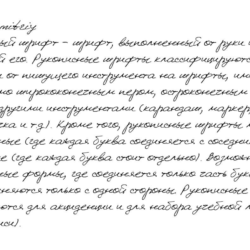 ный шрифт – шрифт, выполненный от руки
й его. Рукописные шрифты классифицируются
от пишущего инструмента на шрифты,
но ширококонечным пером, остроконечным
другими инструментами (карандаш, маркер,
ка и т.д). Кроме того, рукописные шрифты
ные (где каждая буква соединяется с соседни
е (где каждая буква стоит отдельно). Возмож
ные формы, где соединяется только часть бук
няются только с одной стороны. Рукописные
ются для акциденции и для набора учебной
иси).